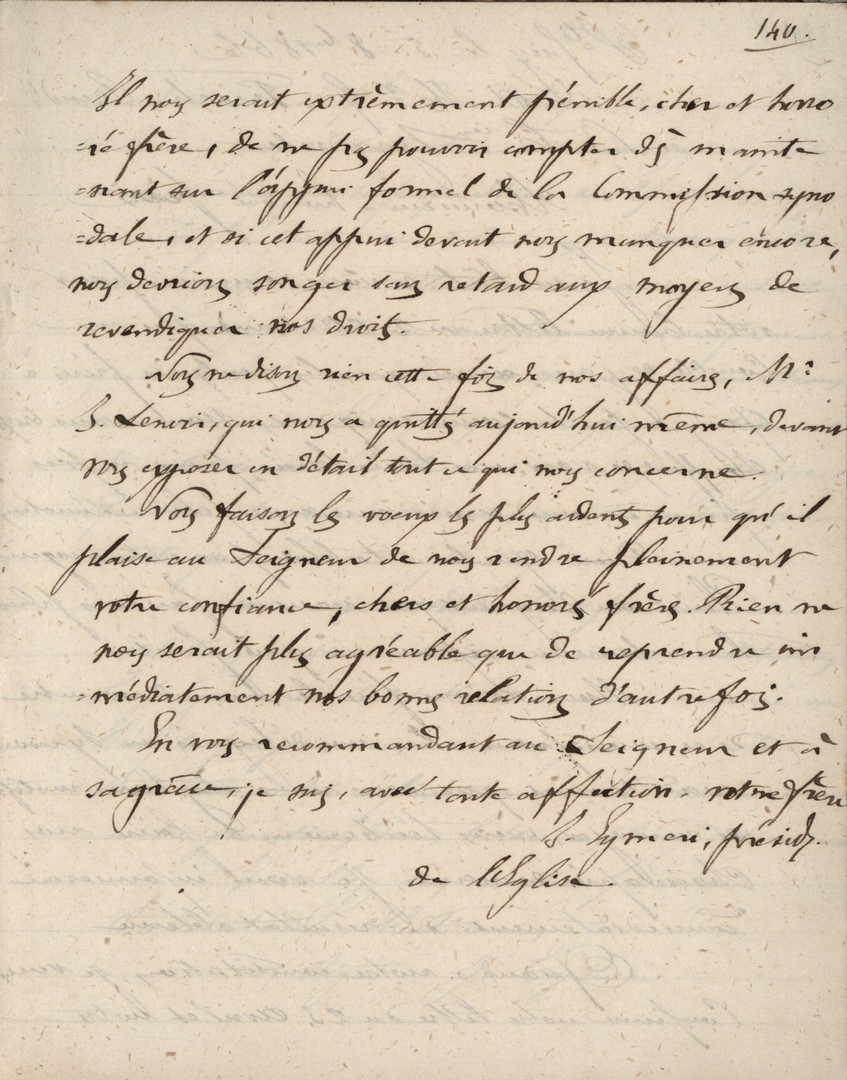 140.
Il nous serait extrèmement pénible, cher et hono
=ré frère, de ne pas pouvoir compter dès mainte
=nant sur l'appui formel de la Commission syno
=dale, et si cet appui devait nous manquer encore,
nous devrions songer sans retard aux moyens de
revendiquer nos droits.
Nous ne disons rien cette fois de nos affaires, Mr
Lenoir, qui nous a quittés aujourd'hui même, devant
vous exposer en détail tout ce qui nous concerne.
Nous faisons les voeux les plus ardents pour qu'il
plaise au Seigneur de nous rendre pleinement
votre confiance, chers et honorés frères. Rien ne
nous serait plus agréable que de reprendre im
=médiatement nos bonnes relations d'autrefois.
En vous recommandant au Seigneur et à
sa grâce, je suis, avec toute affection, votre frère
Eymeri, présid.
de l'Eglise.